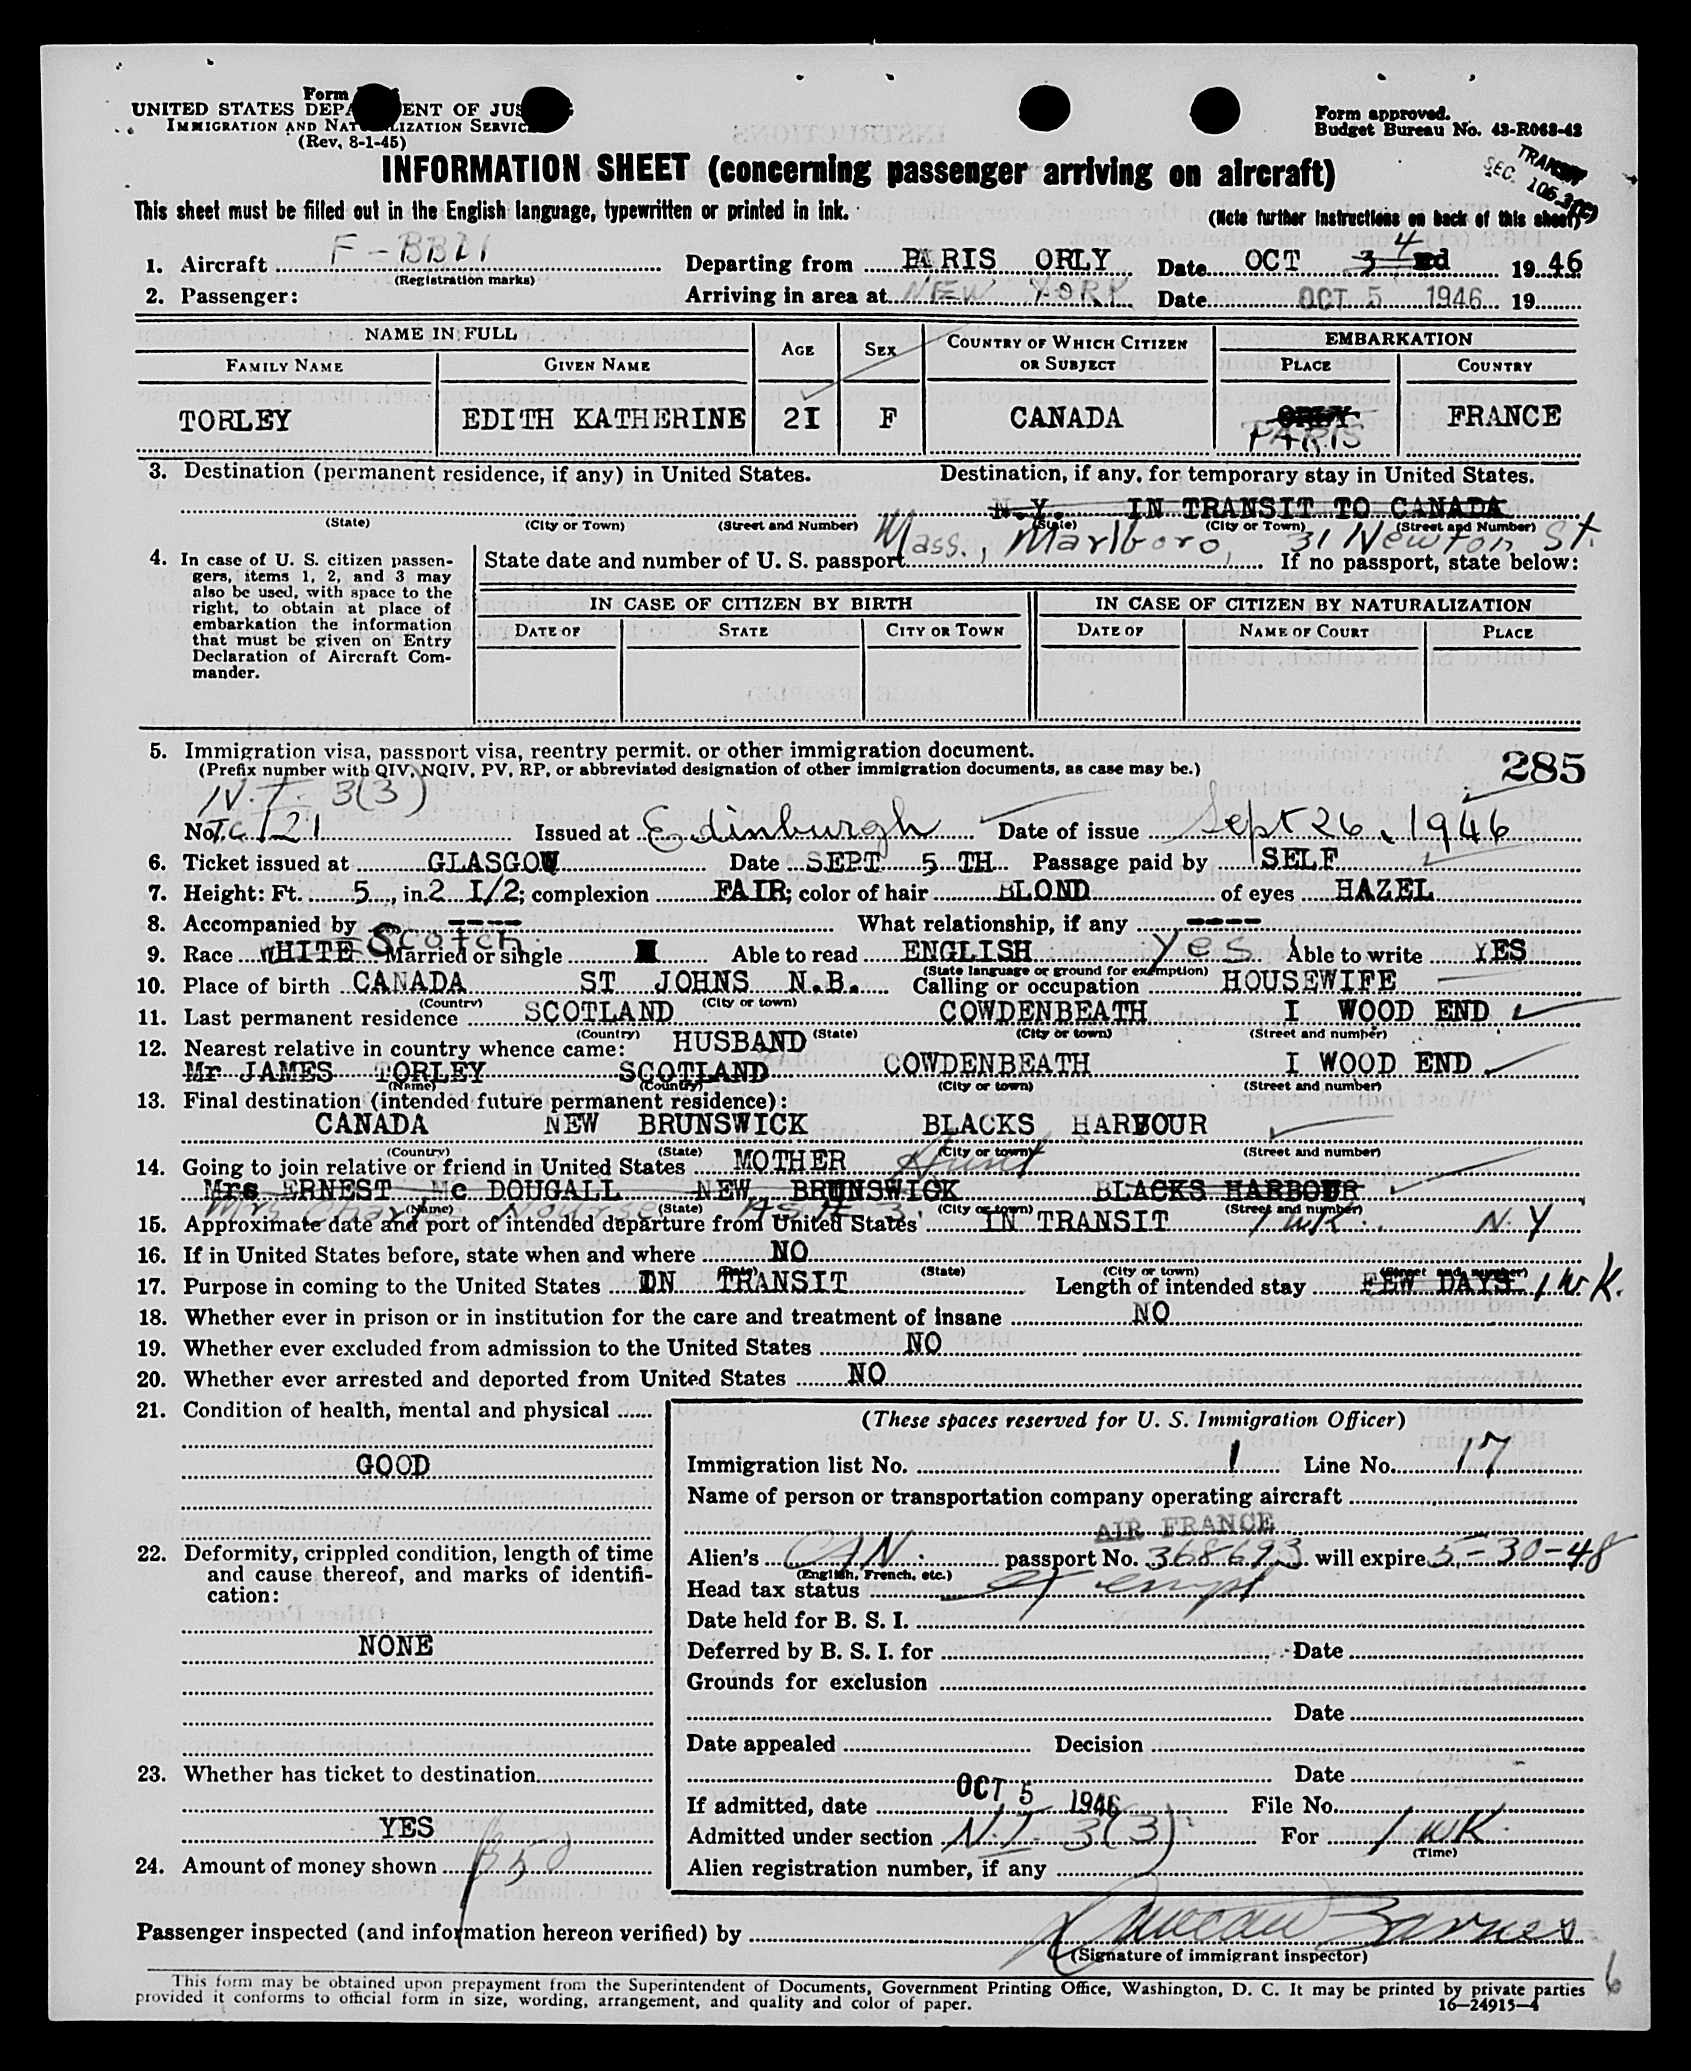 Form
UNITED STATES DEPA ENT OF JUS
IMMIGRATION AND NAT LIZATION SERVIC
(Rev. 8-1-45)
Form approved.
Budget Bureau No. 43-R068-42
INFORMATION SHEET (concerning passenger arriving on aircraft)
TRANSIT
SEC. 105.3(c)
This sheet must be filled out in the English language, typewritten or printed in ink.
(Note further instructions on back of this sheet)
1. Aircraft F-BBZI Departing from PARIS ORLY Date OCT 3 rd 4 1946
(Registration marks)
2. Passenger: Arriving in area at NEW YORK Date OCT 5 1946 19
NAME IN FULL
FAMILY NAME GIVEN NAME AGE SEX COUNTRY OF WHICH CITIZEN OR SUBJECT EMBARKATION PLACE COUNTRY
TORLEY EDITH KATHERINE 2I F CANADA ORLY FRANCE
PARIS
3. Destination (permanent residence, if any) in United States. Destination, if any, for temporary stay in United States.
N.Y. IN TRANSIT TO CANADA
(State) (City or Town) (Street and Number) (State) (City or Town) (Street and Number)
Mass., Marlboro, 31 Newton St.
4. In case of U. S. citizen passengers, items 1, 2, and 3 may also be used, with space to the right, to obtain at place of embarkation the information that must be given on Entry Declaration of Aircraft Commander.
State date and number of U. S. passport If no passport, state below:
IN CASE OF CITIZEN BY BIRTH IN CASE OF CITIZEN BY NATURALIZATION
DATE OF STATE CITY OR TOWN DATE OF NAME OF COURT PLACE
5. Immigration visa, passport visa, reentry permit, or other immigration document.
(Prefix number with QIV, NQIV, PV, RP, or abbreviated designation of other immigration documents, as case may be.)
285
N.I. 3(3)
No. T.C. 121 Issued at Edinburgh Date of issue Sept 26, 1946
6. Ticket issued at GLASGOW Date SEPT 5 TH Passage paid by SELF
7. Height: Ft. 5, in. 2 I/2; complexion FAIR; color of hair BLOND of eyes HAZEL
8. Accompanied by ---- What relationship, if any ----
9. Race WHITE Scotch Married or single M Able to read ENGLISH Yes Able to write YES
(State language or ground for exemption)
10. Place of birth CANADA ST JOHNS N.B. Calling or occupation HOUSEWIFE
(Country) (City or town)
11. Last permanent residence SCOTLAND COWDENBEATH I WOOD END
(Country) (State) (City or town) (Street and number)
12. Nearest relative in country whence came: HUSBAND
Mr JAMES TORLEY SCOTLAND COWDENBEATH I WOOD END
(Name) (Country) (City or town) (Street and number)
13. Final destination (intended future permanent residence):
CANADA NEW BRUNSWICK BLACKS HARBOUR
(Country) (State) (City or town) (Street and number)
14. Going to join relative or friend in United States MOTHER Aunt
Mrs ERNEST Mc DOUGALL NEW BRUNSWICK BLACKS HARBOUR
(Name) (State) (City or town) (Street and number)
Mrs Charles Nourse As # 3
15. Approximate date and port of intended departure from United States IN TRANSIT 1 wk. N.Y
16. If in United States before, state when and where NO
(Date) (State) (City or town) (Street and number)
17. Purpose in coming to the United States IN TRANSIT Length of intended stay FEW DAYS 1 wK.
18. Whether ever in prison or in institution for the care and treatment of insane NO
19. Whether ever excluded from admission to the United States NO
20. Whether ever arrested and deported from United States NO
21. Condition of health, mental and physical
GOOD
22. Deformity, crippled condition, length of time and cause thereof, and marks of identification:
NONE
23. Whether has ticket to destination
YES
24. Amount of money shown $50
(These spaces reserved for U. S. Immigration Officer)
Immigration list No. 1 Line No. 17
Name of person or transportation company operating aircraft
AIR FRANCE
Alien's CAN. passport No. 368693 will expire 5-30-48
(English, French, etc.)
Head tax status exempt
Date held for B. S. I.
Deferred by B. S. I. for Date
Grounds for exclusion
Date
Date appealed Decision
Date
If admitted, date OCT 5 1946 File No.
Admitted under section N.I. 3(3) For 1 wK.
(Time)
Alien registration number, if any
Passenger inspected (and information hereon verified) by Duncan Barnes
(Signature of immigrant inspector)
6
This form may be obtained upon prepayment from the Superintendent of Documents, Government Printing Office, Washington, D. C. It may be printed by private parties
provided it conforms to official form in size, wording, arrangement, and quality and color of paper.
16—24915-4